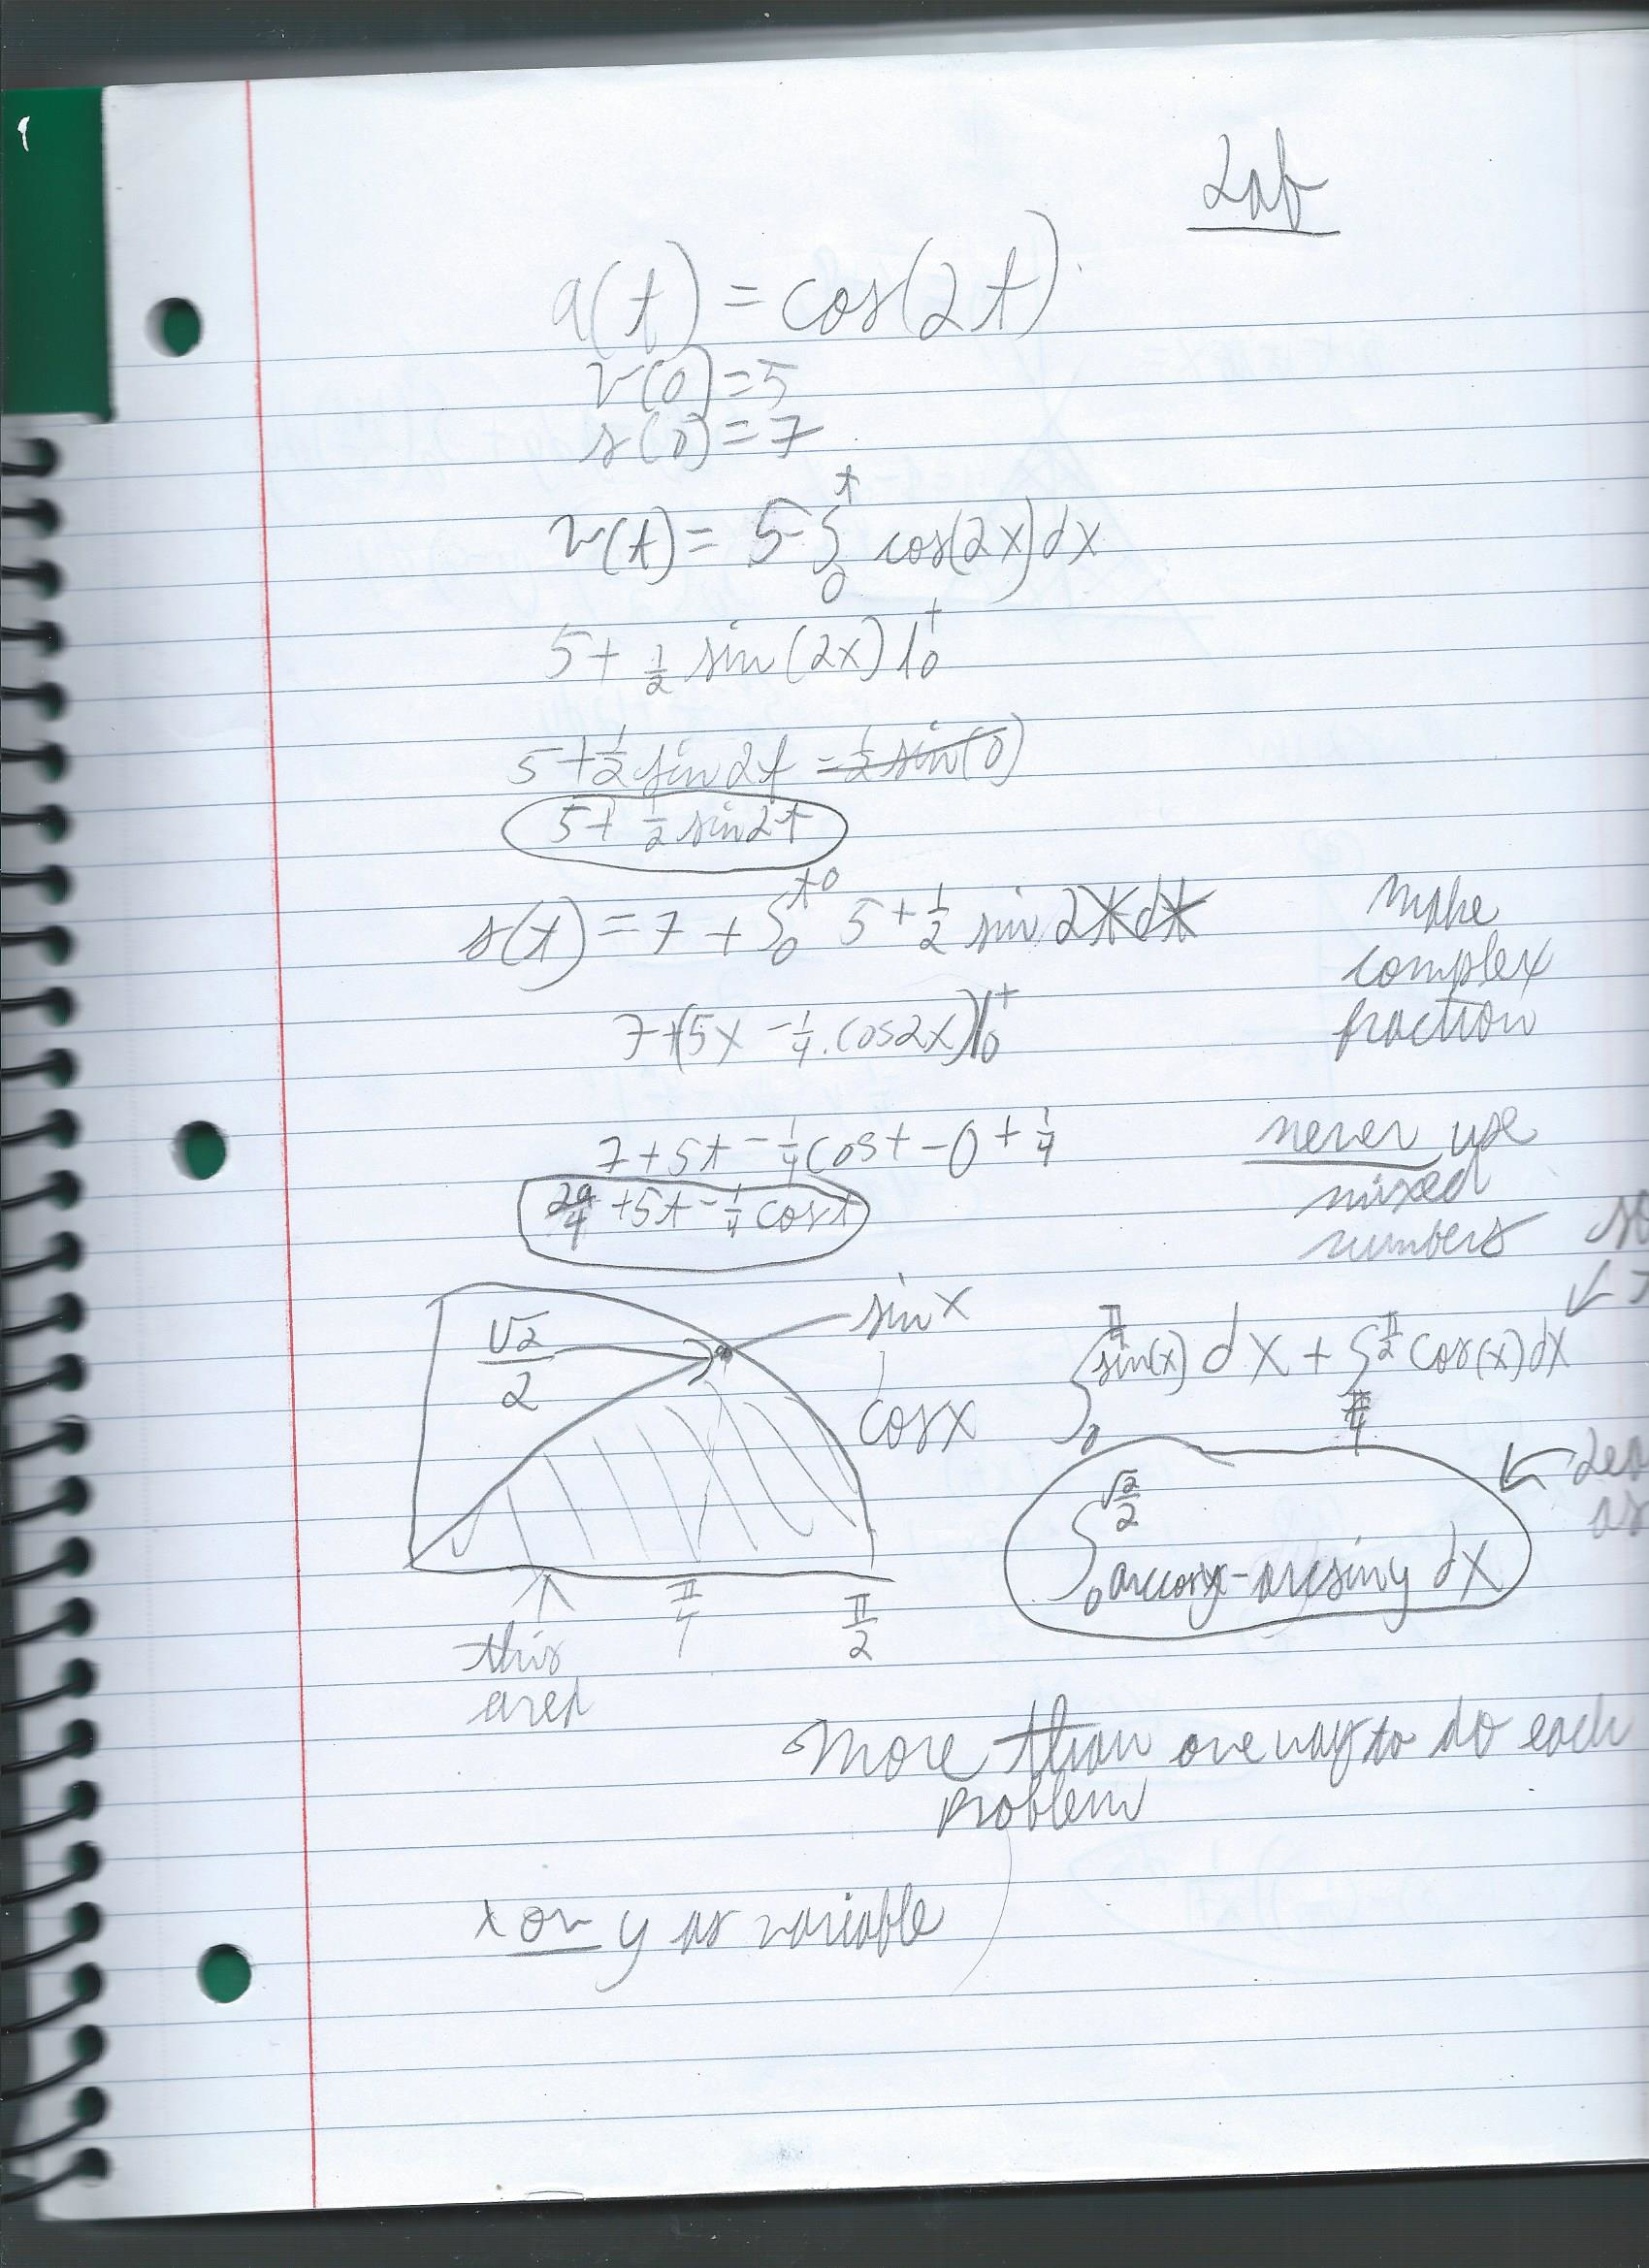 Lab
a(t) = cos(2t)
v(0)=5
s(0)=7
v(t)= 5-∫₀ᵗ cos(2x)dx
5+ ½ sin(2x)|₀ᵗ
5+½ sin2t -½ sin(0)
5+ ½ sin2t
s(t) = 7 + ∫₀ᵗ 5+½ sin 2x dx
7+(5x -¼ cos2x)|₀ᵗ
7+5t -¼ cost -0 + ¼
29/4 +5t -¼ cost
make
complex
fraction
never use
mixed
numbers
√2/2
sinx
cosx
π/4
π/2
this
area
∫₀^(π/4) sin(x) dx + ∫_(π/4)^(π/2) cos(x)dx
∫₀^(√2/2) arccosy-arcsiny dx
more than one way to do each
problem
x or y as variable